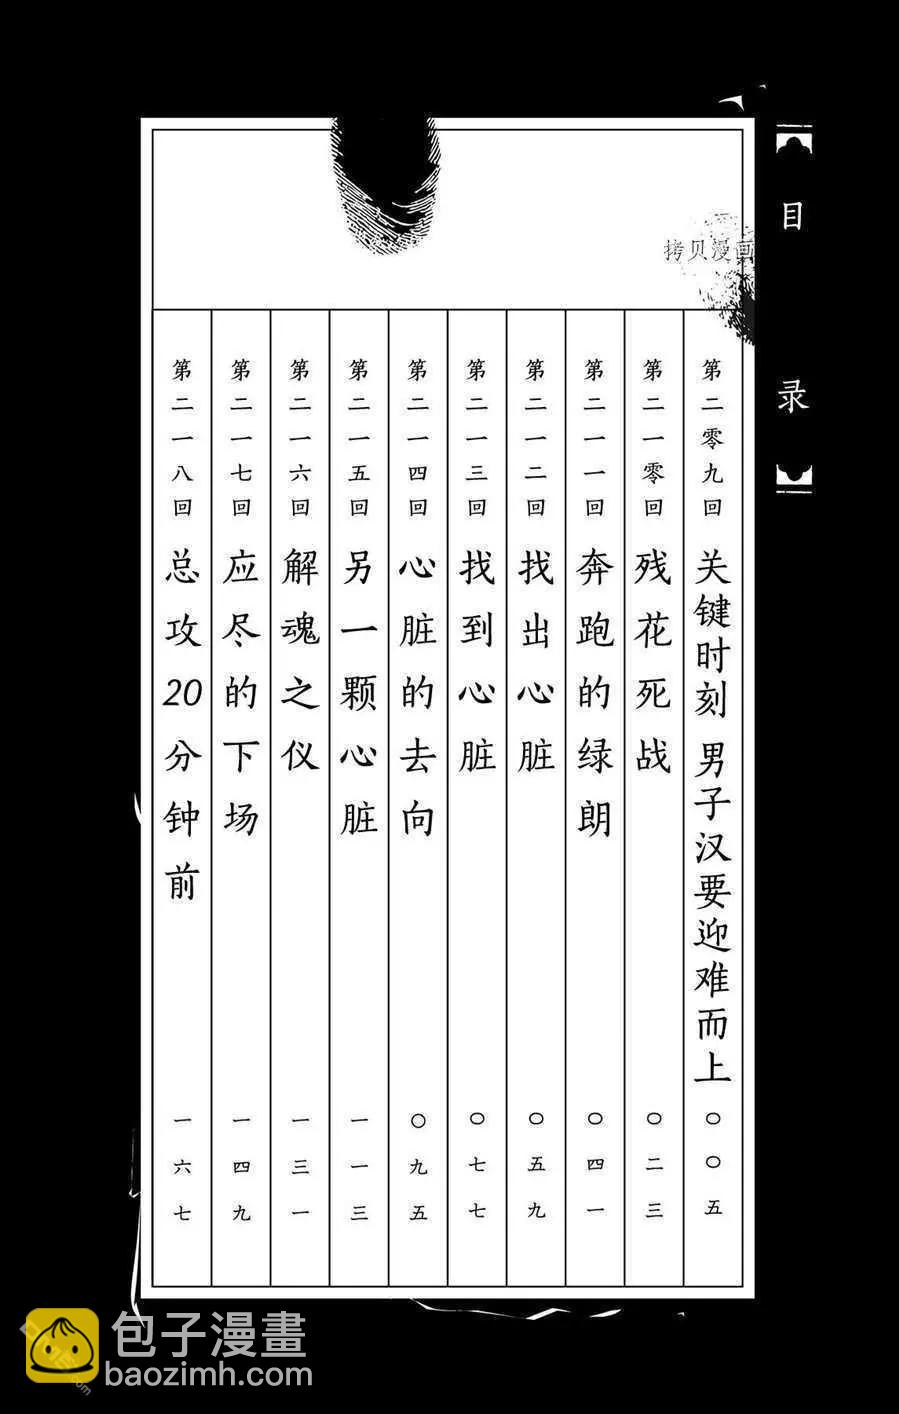 目录
拷贝漫画
第二零九回 关键时刻 男子汉要迎难而上 〇〇五
第二一零回 残花死战 〇二三
第二一一回 奔跑的绿朗 〇四一
第二一二回 找出心脏 〇五九
第二一三回 找到心脏 〇七七
第二一四回 心脏的去向 〇九五
第二一五回 另一颗心脏 一一三
第二一六回 解魂之仪 一三一
第二一七回 应尽的下场 一四九
第二一八回 总攻20分钟前 一六七
包子漫畫
baozimh.com